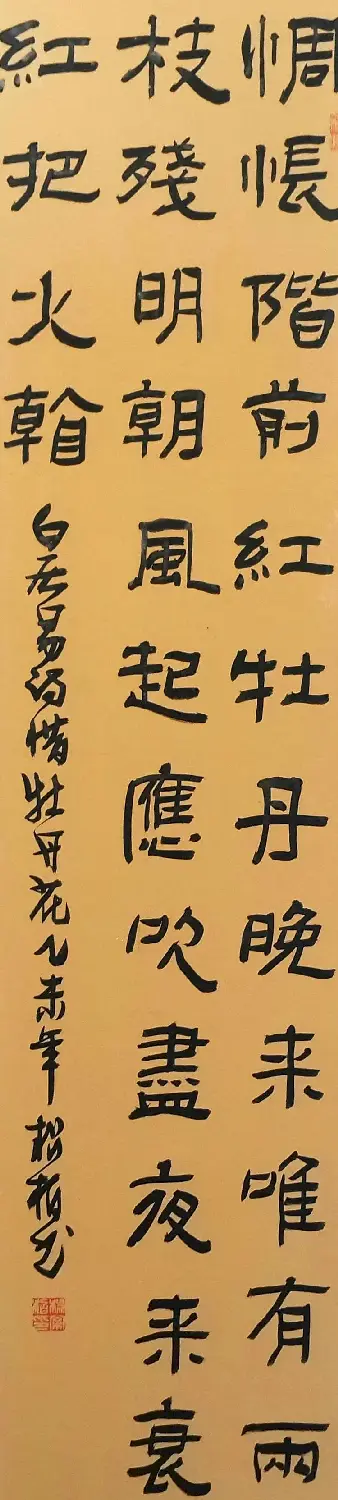 惆悵階前紅牡丹晚来唯有兩
枝殘明朝風起應吹盡夜来衰
紅把火看
白居易诗惜牡丹花乙未年松柏书